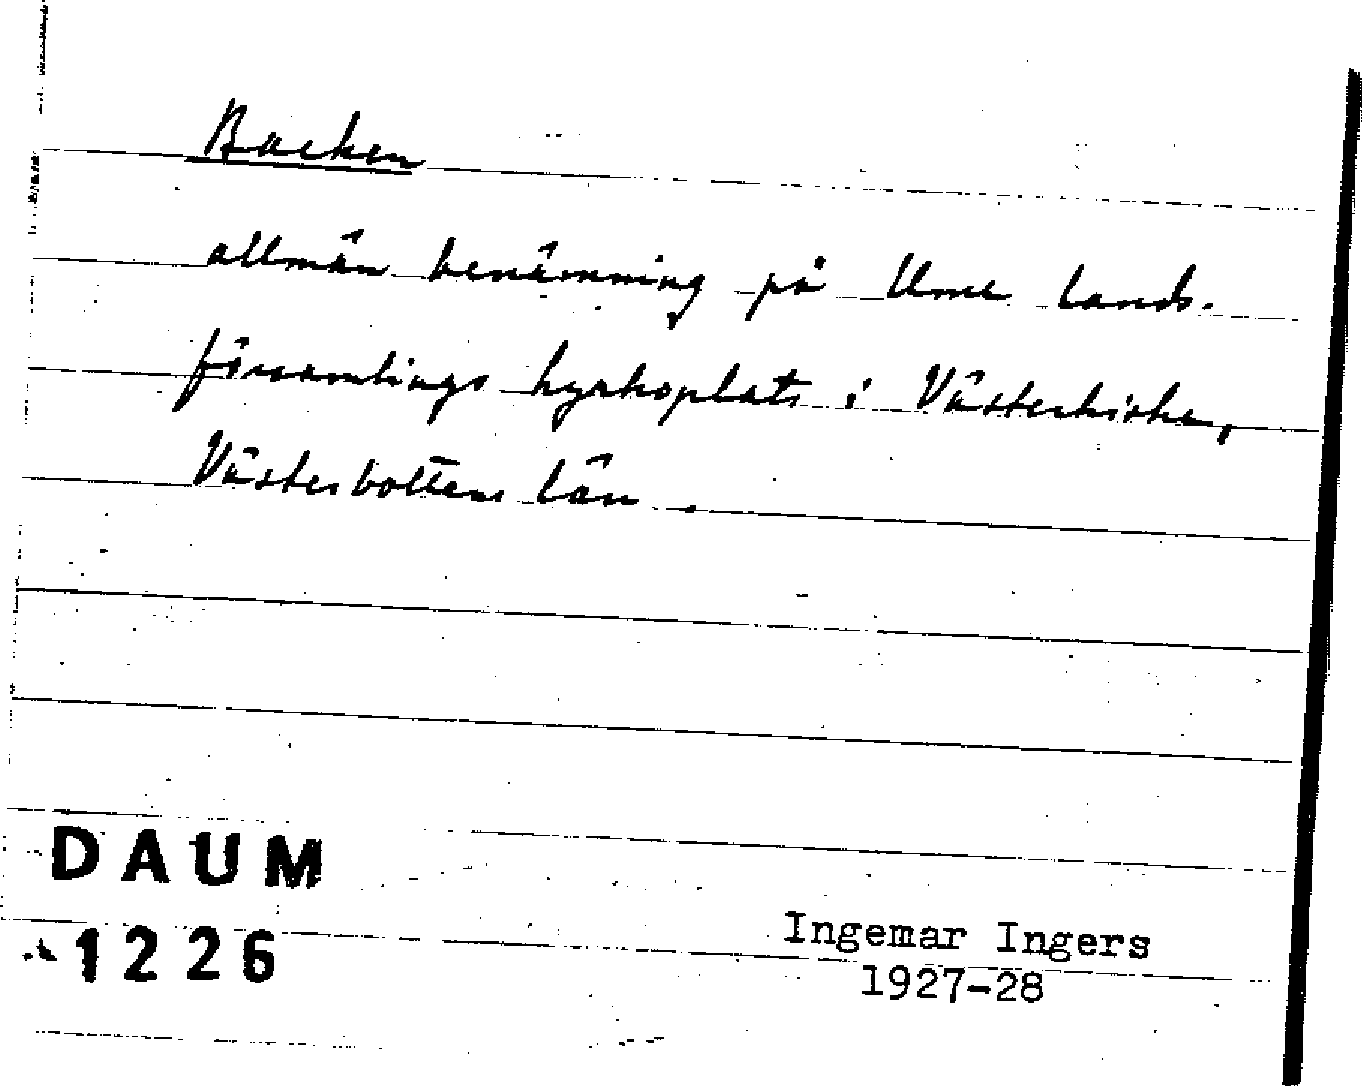 Backen
allmän benämning på Ume lands-
församlings kyrkoplats i Västerhiske,
Västerbottens län.
DAUM
1226
Ingemar Ingers
1927-28